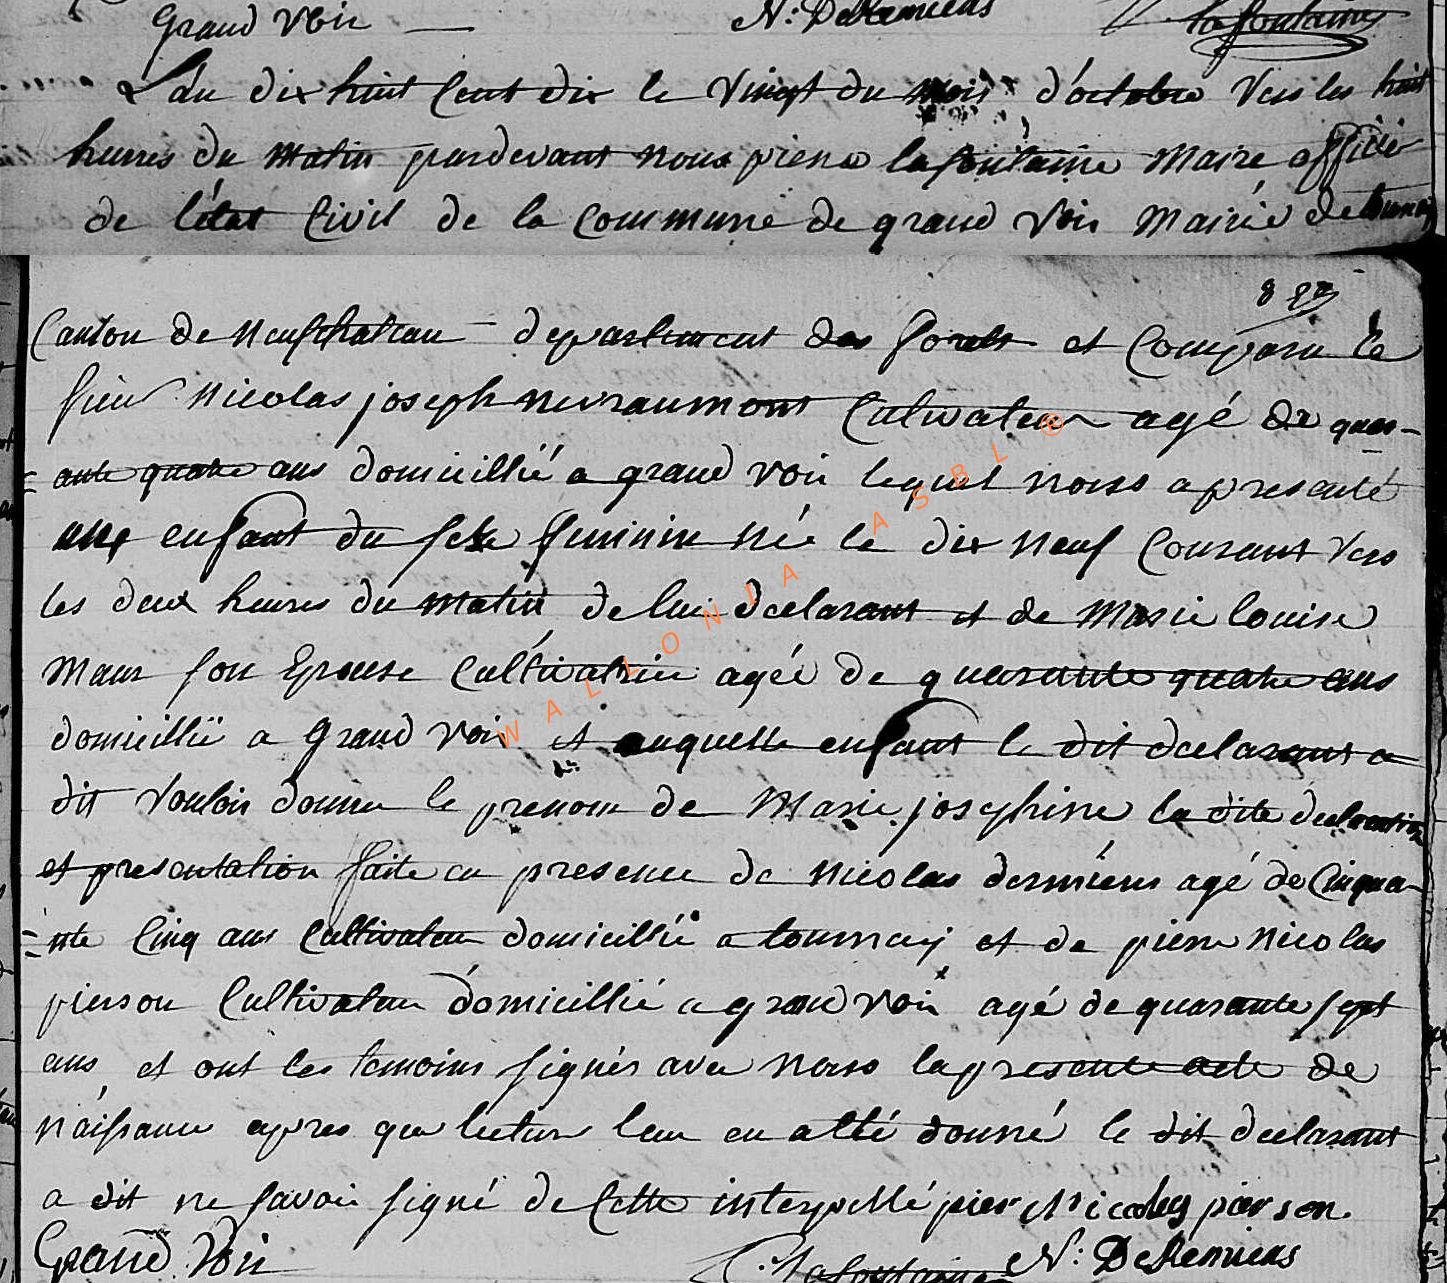 Grand Voir N: DeRemiens lafontaine
L'an dix huit Cent dix le Vingt du mois d'octobre Vers les huit
heures du matin pardevant nous piere lafontaine Maire officié
de l'état Civil de la Commune de grand Voir Mairie de tournay
822
Canton de neufchateau departement des forets et Comparu le
sieur Nicolas joseph nevraumont Cultivateur agé de quar-
=ante quatre ans domicillié a grand voir lequel nous a presenté
une enfant du sexe feminin née le dix neuf Courant Vers
les deux heures du matin de lui declarant et de Marie louise
Maus son Epouse Cultivatrice agée de quarante quatre ans
domicillié a grand Voir et auquelle enfant le dit declarant a
dit Vouloir donner le prenom de Marie josephine la dite declaration
et presentation faite en presence de nicolas dermiens agé de Cinqua-
=nte Cinq ans Cultivateur domicillié a tournay et de piere Nicolas
pierson Cultivateur domicillié a grand Voir agé de quarante sept
ans et ont les temoins signés avec nous la presente acte de
náissance apres que lecture leur en a été donné le dit declarant
a dit ne savoir signé de Cette interpellé pier Nicolas pierson
Grand Voir Lafontaine N: DeRemiens
WALLONIA ASBL ®